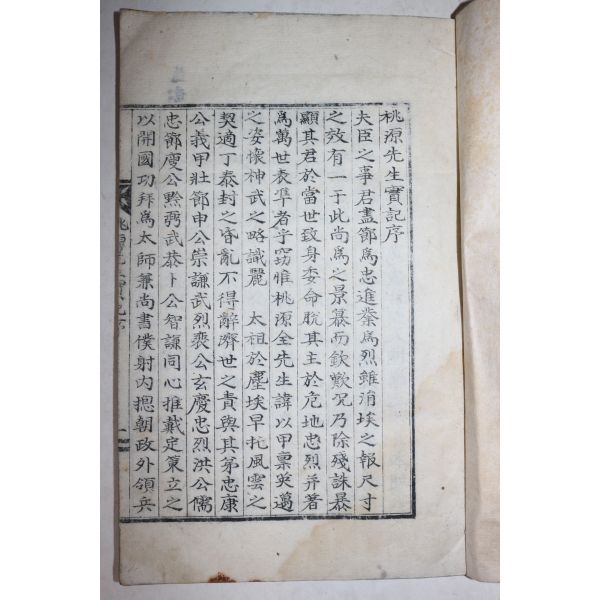 桃源先生實記序
夫臣之事君盡節爲忠進業爲烈雖涓埃之報尺寸
之效有一于此尚爲之景慕而欽歎况乃除殘誅暴
顯其君於當世致身委命脫其主於危地忠烈并著
爲萬世表準者乎窃惟桃源全先生諱以甲稟英邁
之姿懷神武之略識麗 太祖於塵埃早托風雲之
契適丁泰封之昏亂不得辭濟世之責與其弟忠康
公義甲壯節申公崇謙武烈裵公玄慶忠烈洪公儒
忠節庾公黔弼武恭卜公智謙同心推戴定策立之
以開國功拜爲太師兼尚書僕射內摠朝政外領兵